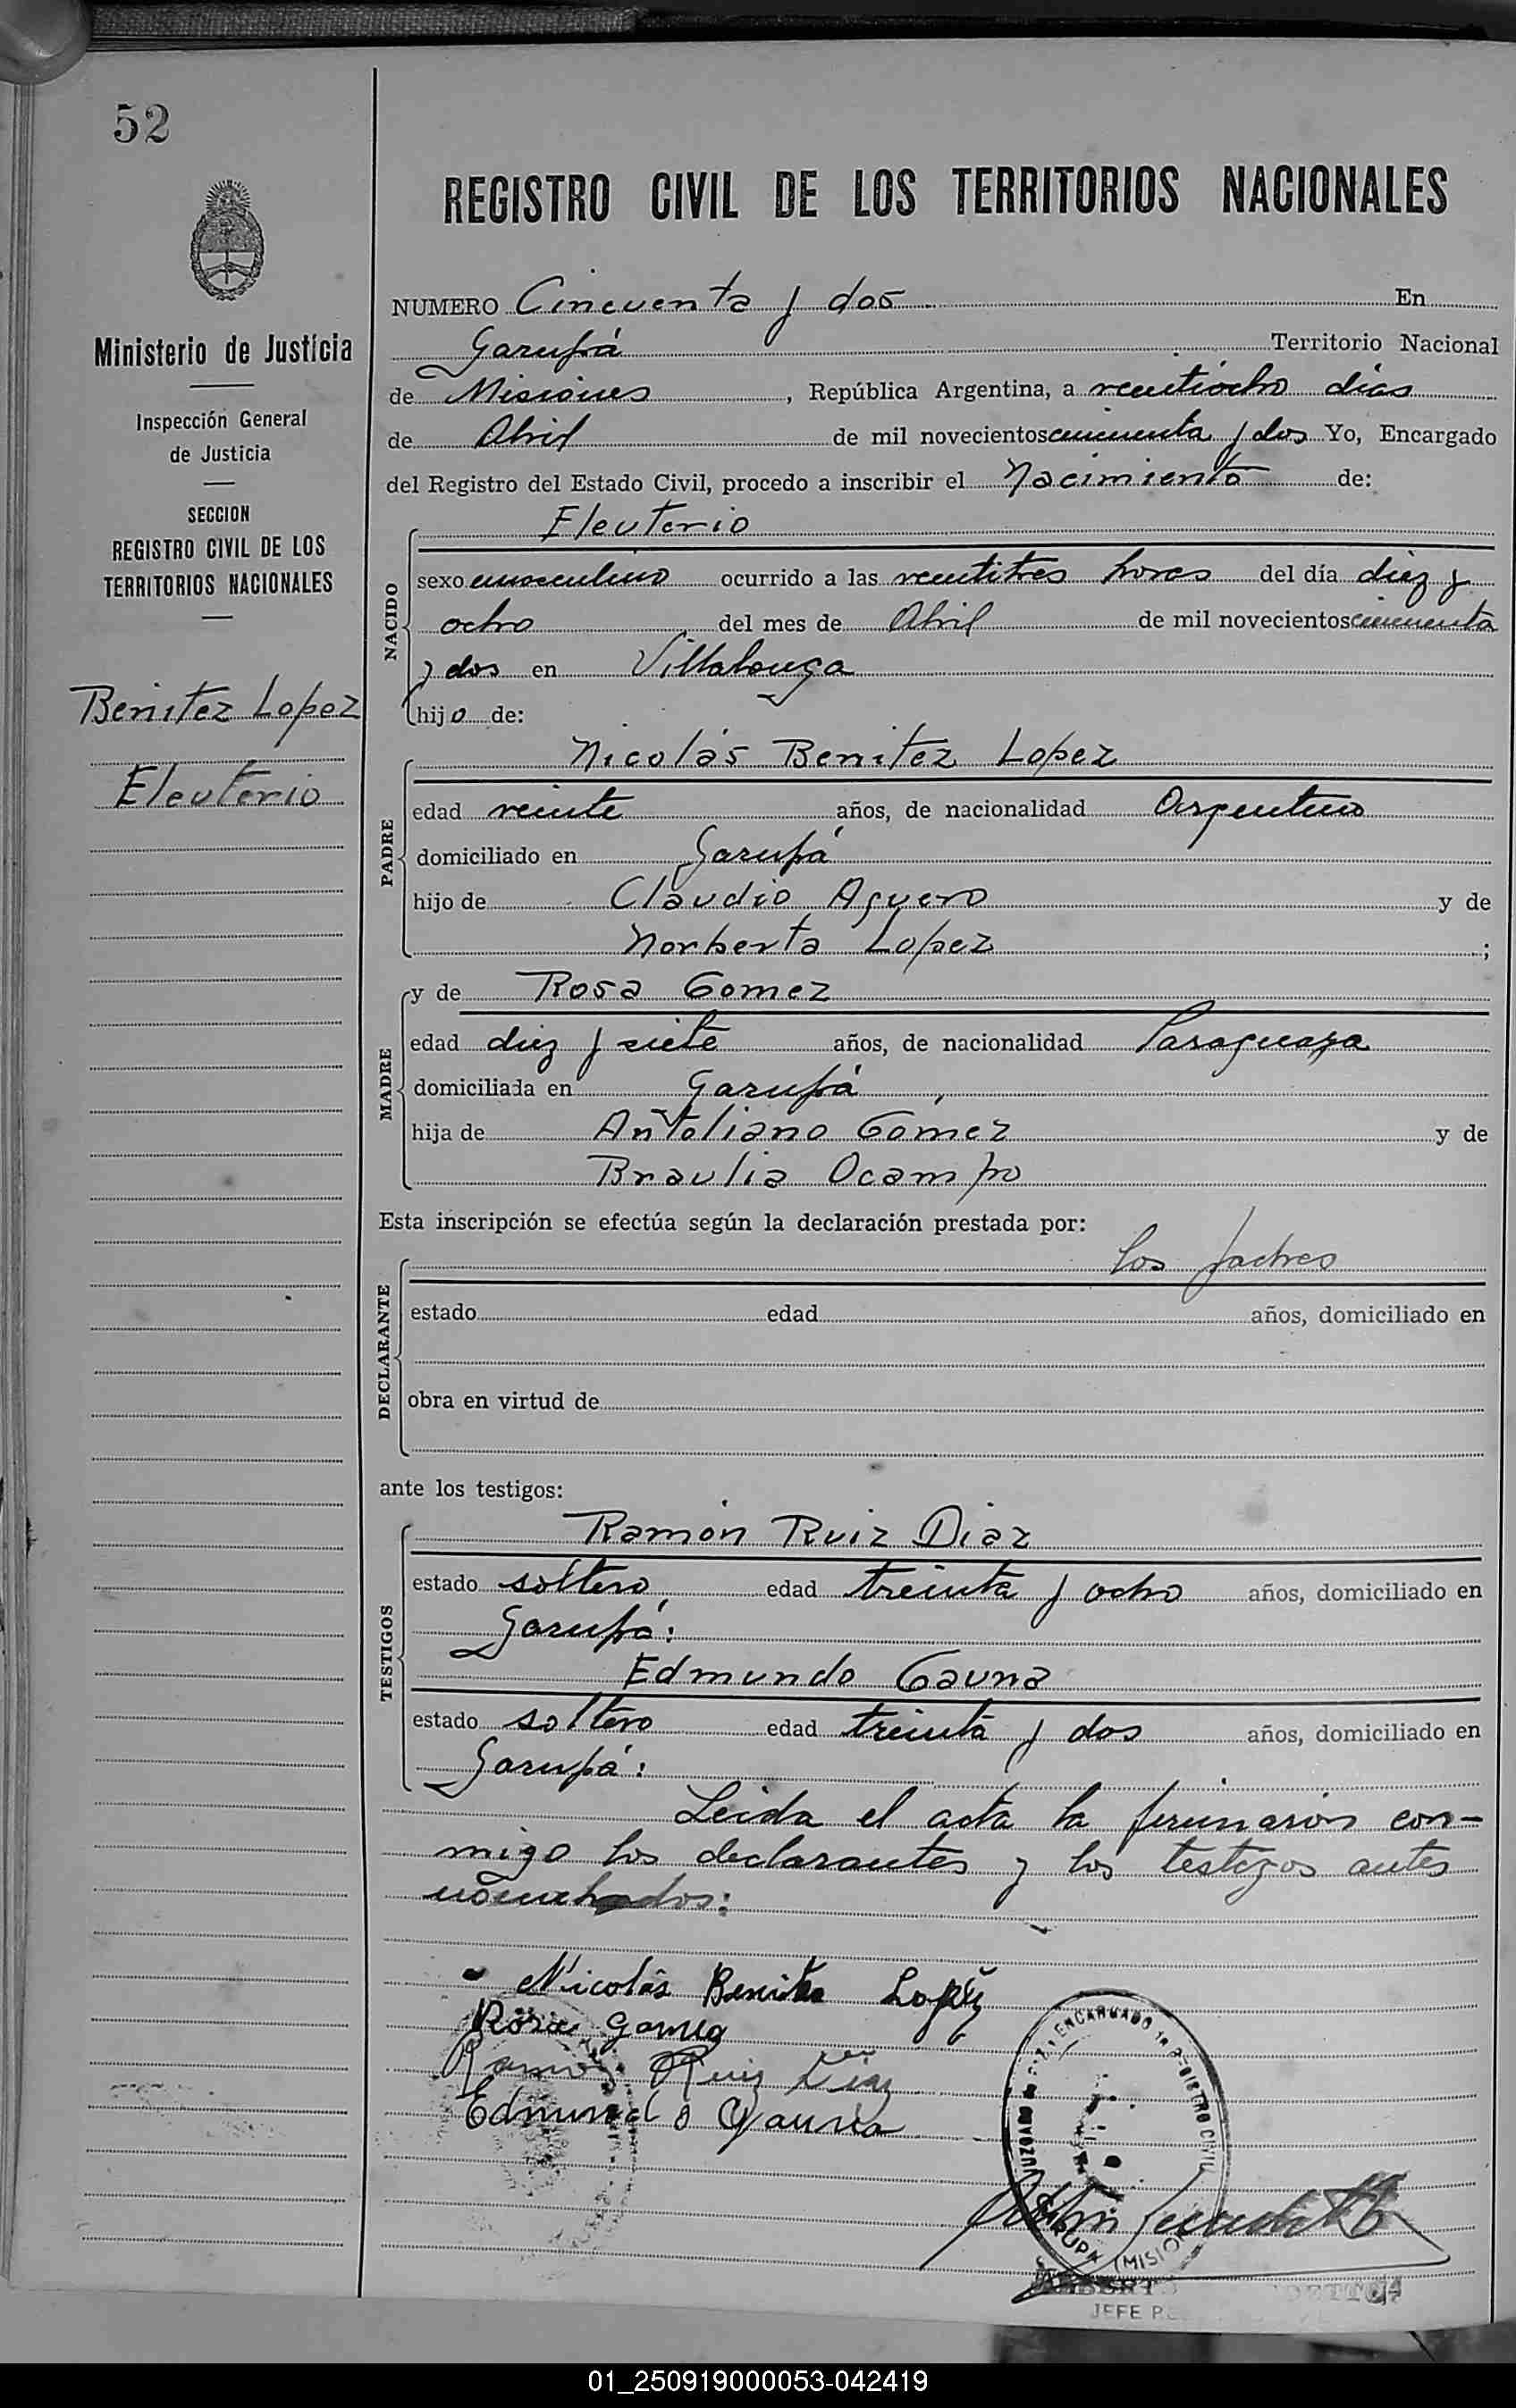 52
REGISTRO CIVIL DE LOS TERRITORIOS NACIONALES
Ministerio de Justicia
Inspección General
de Justicia
SECCION
REGISTRO CIVIL DE LOS
TERRITORIOS NACIONALES
Benitez Lopez
Eleuterio
NUMERO Cincuenta y dos En
Garupá Territorio Nacional
de Misiones, República Argentina, a veintiocho días
de Abril de mil novecientos cincuenta y dos Yo, Encargado
del Registro del Estado Civil, procedo a inscribir el Nacimiento de:
NACIDO
Eleuterio
sexo masculino ocurrido a las veintitres horas del día diez y
ocho del mes de Abril de mil novecientos cincuenta
y dos en Villalonga
hijo de:
PADRE
Nicolás Benitez Lopez
edad veinte años, de nacionalidad Argentino
domiciliado en Garupá
hijo de Claudio Aguero y de
Norberta Lopez ;
MADRE
y de Rosa Gomez
edad diez y siete años, de nacionalidad Paraguaya
domiciliada en Garupá
hija de Antoliano Gómez y de
Braulia Ocampo
Esta inscripción se efectúa según la declaración prestada por:
DECLARANTE
los padres
estado edad años, domiciliado en
obra en virtud de
ante los testigos:
TESTIGOS
Ramón Ruiz Diaz
estado soltero edad treinta y ocho años, domiciliado en
Garupá:
Edmundo Gauna
estado soltero edad treinta y dos años, domiciliado en
Garupá:
Leida el acta la firmaron con-
migo los declarantes y los testigos antes
nombrados:
Nicolás Benitez Lopéz
Rosa Gomez
Ramon Ruiz Diaz
Edmundo Gauna
ENCARGADO CIVIL
JEFE
01_250919000053-042419